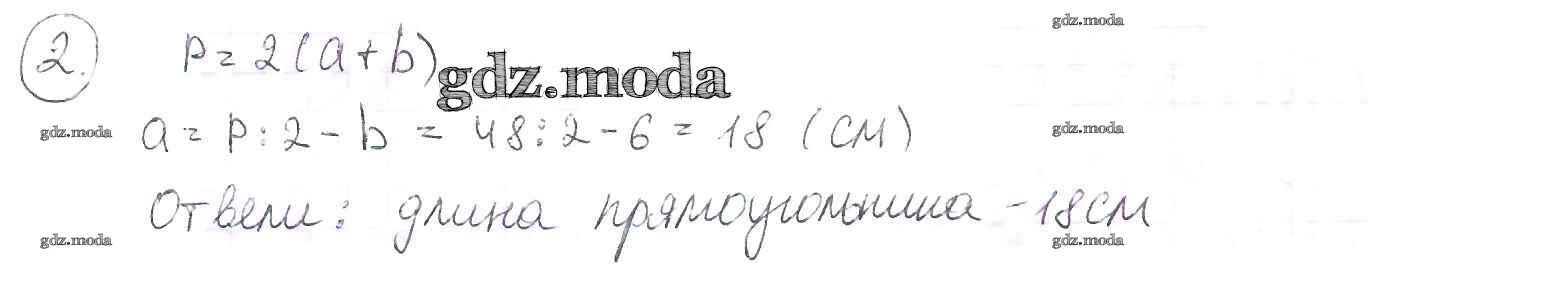 gdz.moda
2. P = 2(a+b)
gdz.moda
gdz.moda a = P : 2 - b = 48 : 2 - 6 = 18 (см) gdz.moda
Ответ: длина прямоугольника - 18 см
gdz.moda gdz.moda